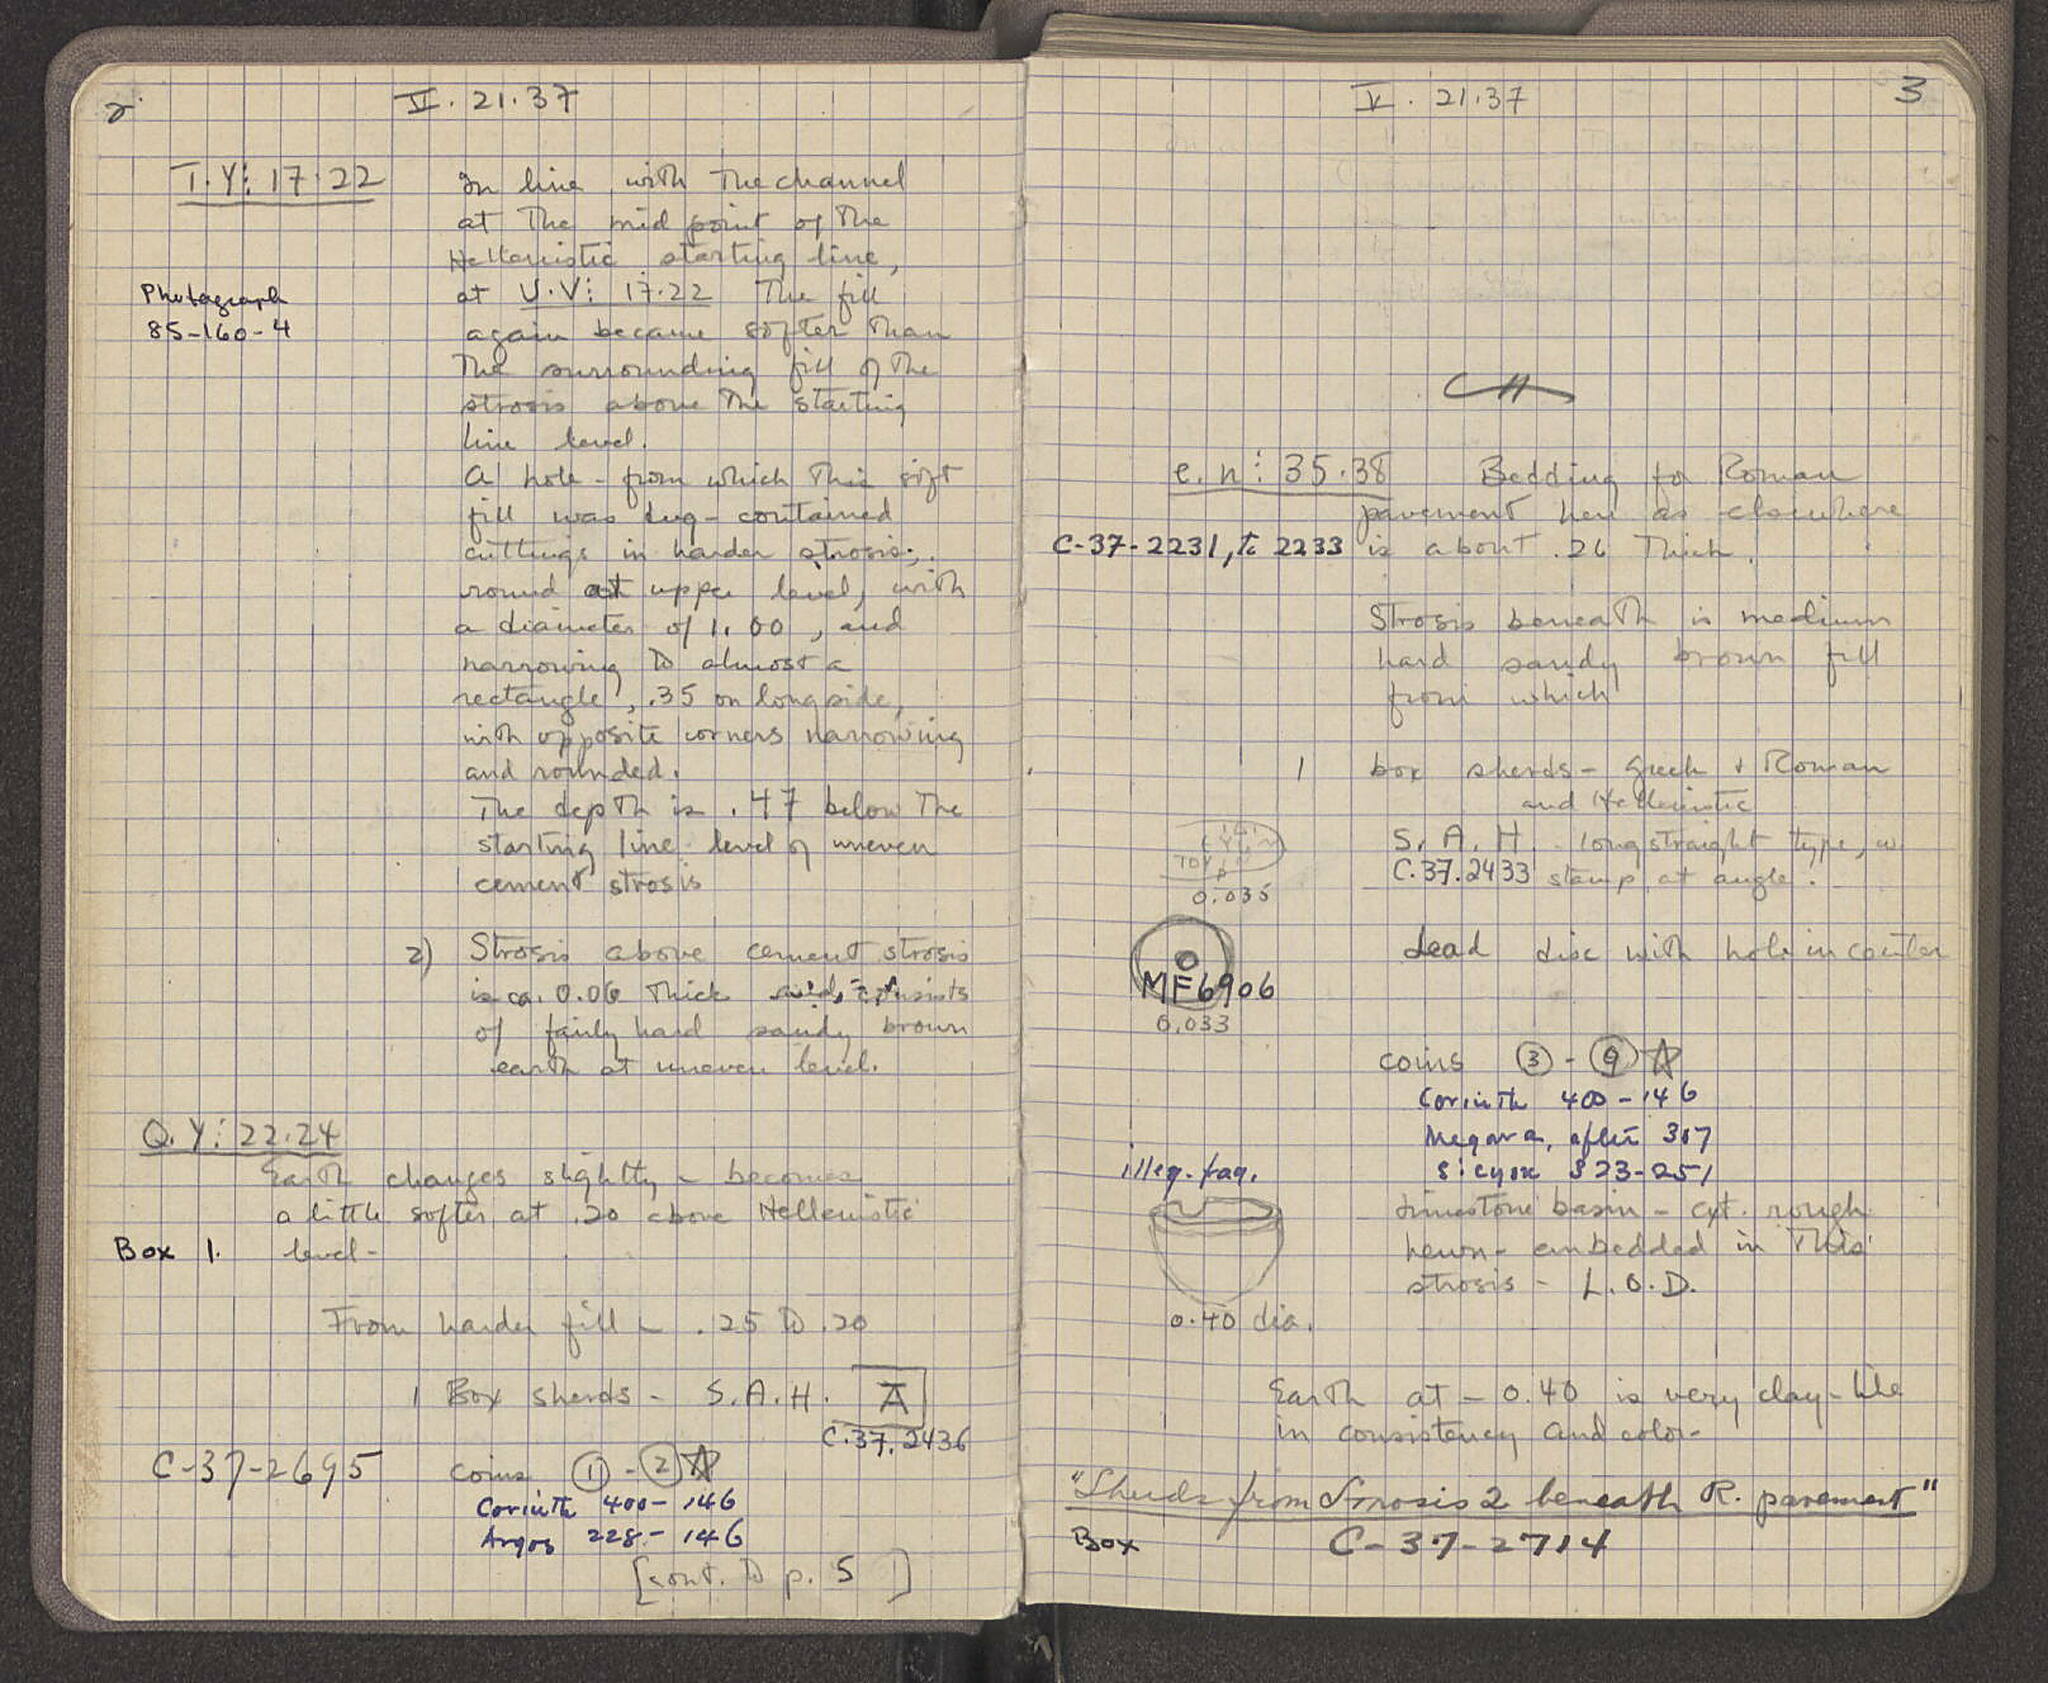 2
V. 21.37
T.Y: 17.22
In line with the channel
at the mid point of the
Hellenistic starting line,
Photograph
85-160-4
at U.V: 17.22 The fill
again became softer than
the surrounding fill of the
strosis above the starting
line level.
A hole - from which this soft
fill was dug - contained
cuttings in harder strosis;
round at upper level, with
a diameter of 1.00, and
narrowing to almost a
rectangle, .35 on long side,
with opposite corners narrowing
and rounded.
The depth is .47 below the
starting line level of uneven
cement strosis
2) Strosis above cement strosis
is ca. 0.06 thick and consists
of fairly hard sandy brown
earth at uneven level.
Q.Y: 22.24
Earth changes slightly - becomes
a little softer at .20 above Hellenistic
Box 1. level -
From harder fill - .25 to .20
1 Box sherds - S.A.H. A
C.37.2436
C-37-2695 coins 1 - 2
Corinth 400-146
Argos 228-146
[cont. to p. 5]
V. 21.37
3
e.n: 35.38 Bedding for Roman
pavement here as elsewhere
C-37-2231, to 2233 is about .26 thick.
Strosis beneath is medium
hard sandy brown fill
from which
1 box sherds - Greek + Roman
and Hellenistic
S.A.H. long straight type, w.
C.37.2433 stamp at angle.
0.035
Lead disc with hole in center
MF6906
0.033
coins 3 - 9
Corinth 400-146
Megara, after 307
illeg. frag.
Sicyon 323-251
Limestone basin - ext. rough
hewn - embedded in this
strosis - L.O.D.
0.40 dia.
Earth at - 0.40 is very clay-like
in consistency and color -
"Sherds from Strosis 2 beneath R. pavement"
Box C-37-2714